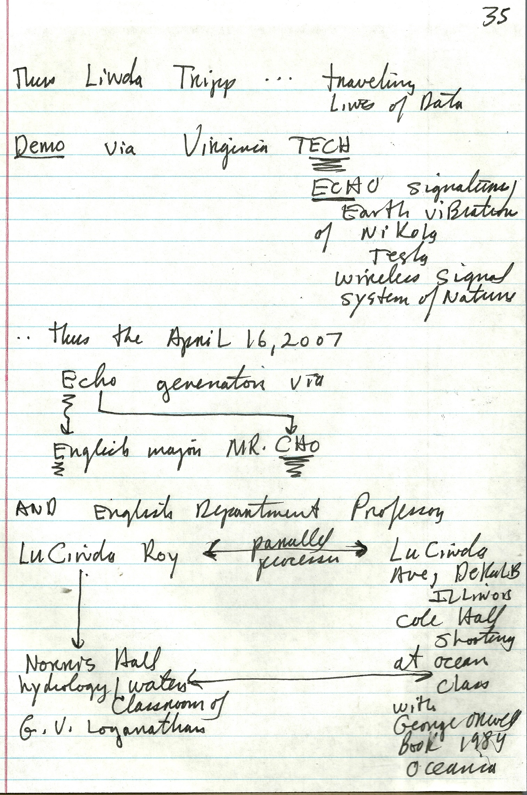 35
Thus Linda Tripp ... traveling
Lines of Data
Demo via Virginia TECH
ECHO signature,
Earth viBration
of NiKola
Tesla
wireless signal
system of Nature
.. thus the ApriL 16, 2007
Echo generator via
English major MR. CHO
AND English Department Professor
LuCinda Roy parallel processor LuCinda
Ave, DeKalB
ILLinois
Cole Hall
shooting
Norris Hall at ocean
hydrology / water class
Classroom of with
G. V. Loganathan George Orwell
Book 1984
Oceania